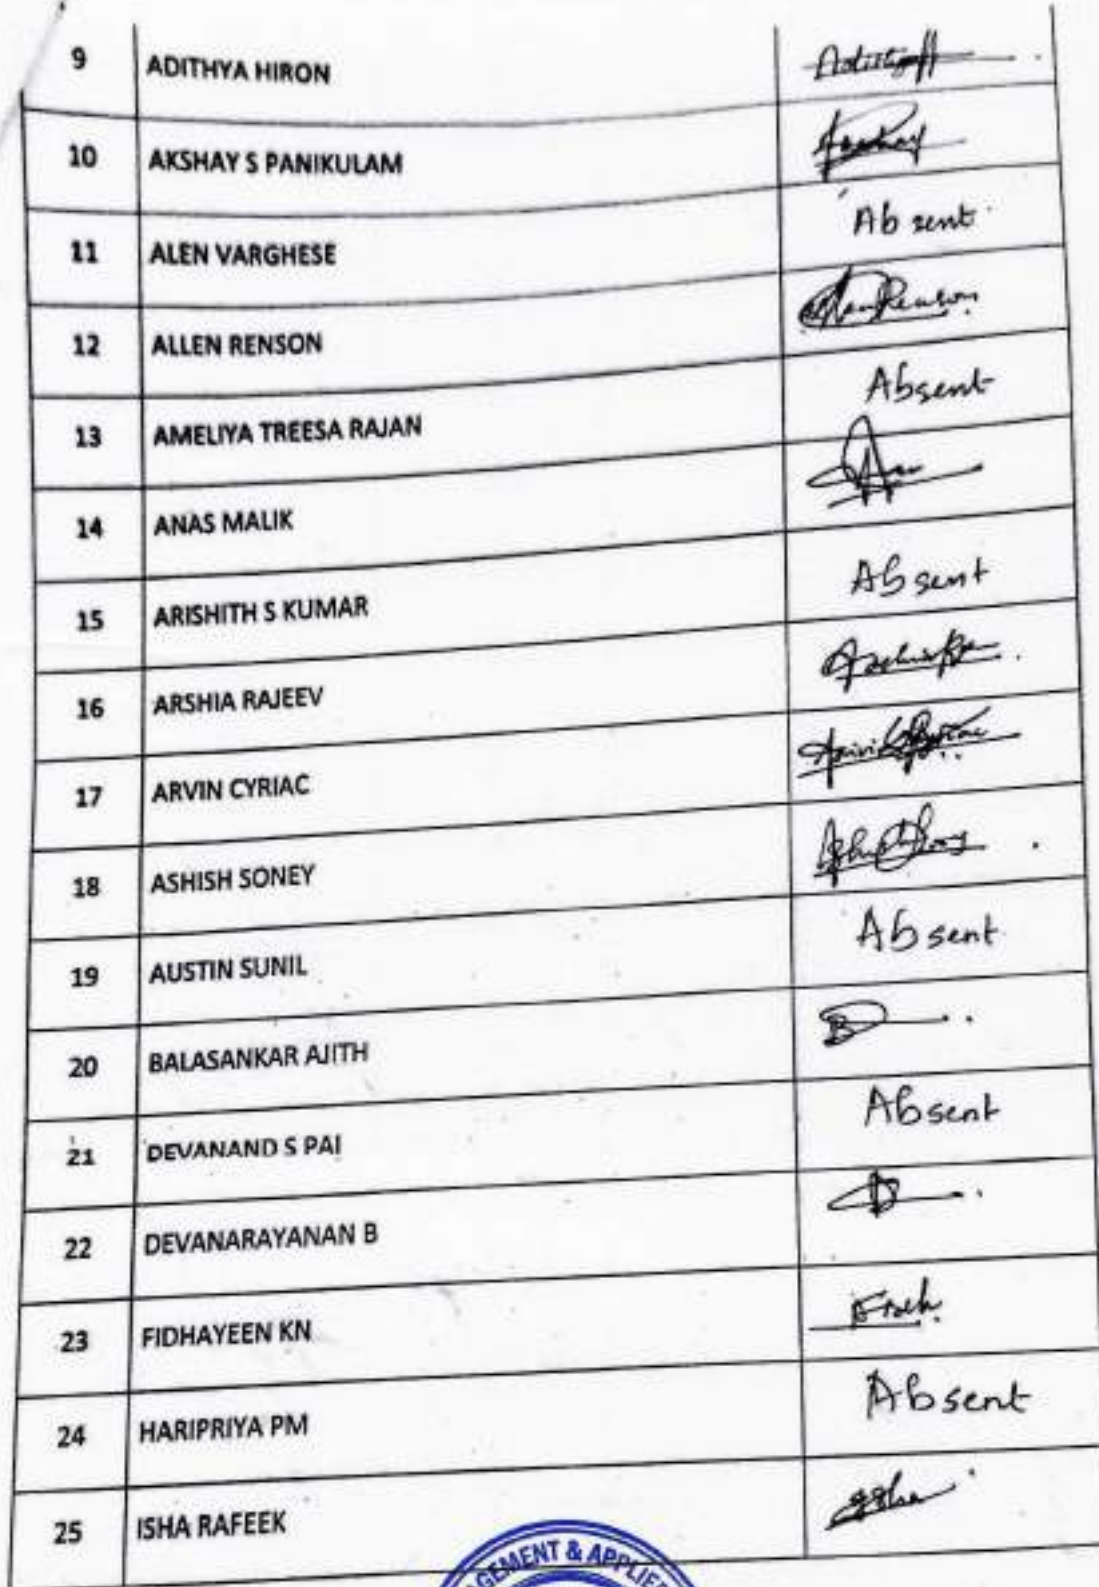 9 ADITHYA HIRON
10 AKSHAY S PANIKULAM Akshay
11 ALEN VARGHESE Absent
12 ALLEN RENSON Allen Renson
13 AMELIYA TREESA RAJAN Absent
14 ANAS MALIK
15 ARISHITH S KUMAR Absent
16 ARSHIA RAJEEV
17 ARVIN CYRIAC
18 ASHISH SONEY
19 AUSTIN SUNIL Absent
20 BALASANKAR AJITH
21 DEVANAND S PAI Absent
22 DEVANARAYANAN B
23 FIDHAYEEN KN
24 HARIPRIYA PM Absent
25 ISHA RAFEEK
GEMENT & APPLIE